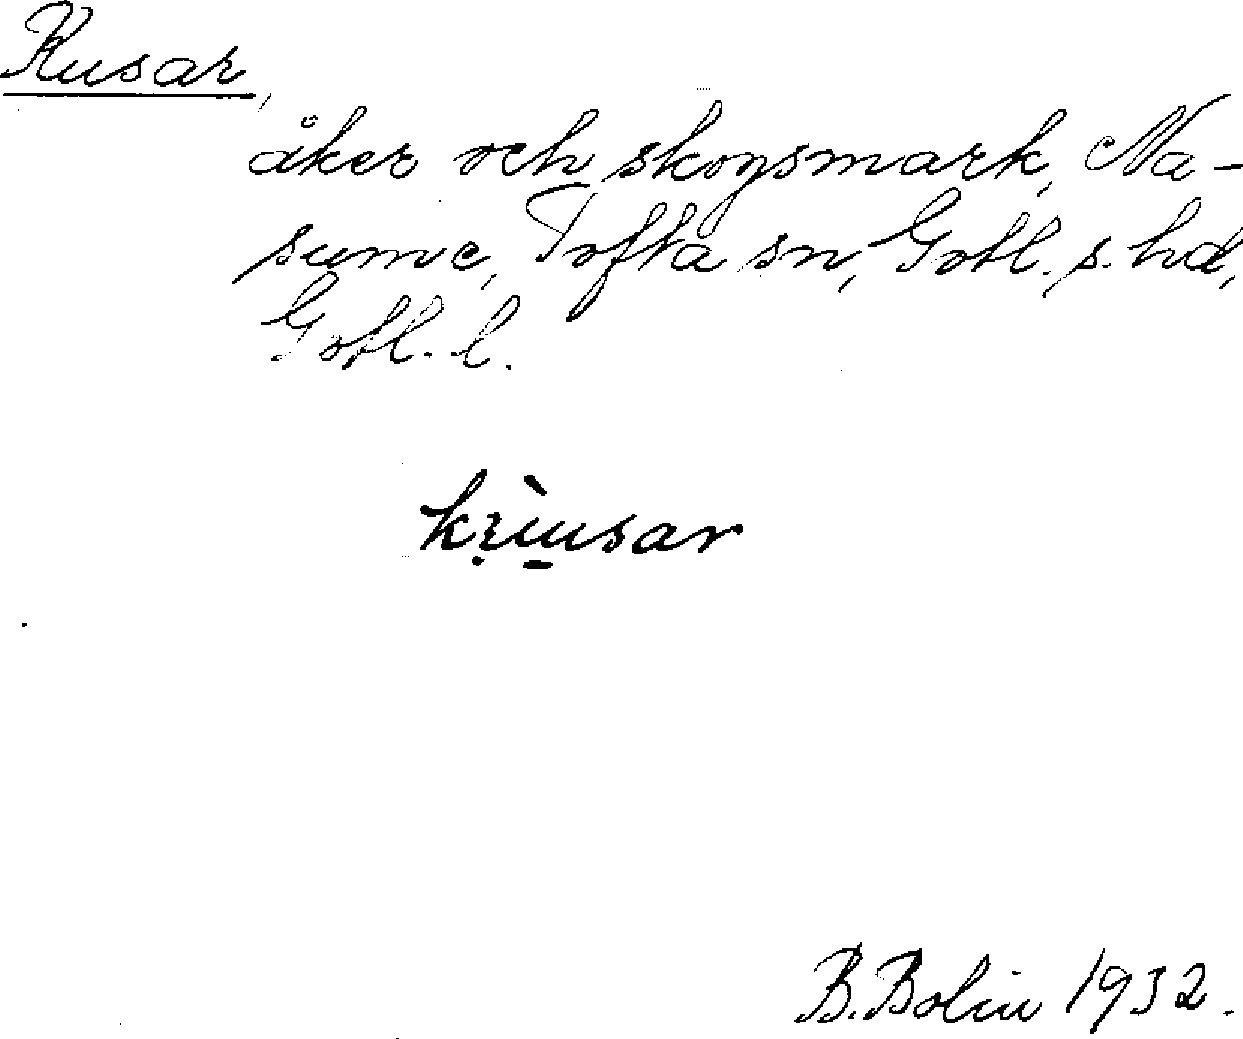 Kusar,
åker och skogsmark, Na-
sume, Tofta sn, Gotl. s. hd,
Gotl. l.
B. Bolin 1932.